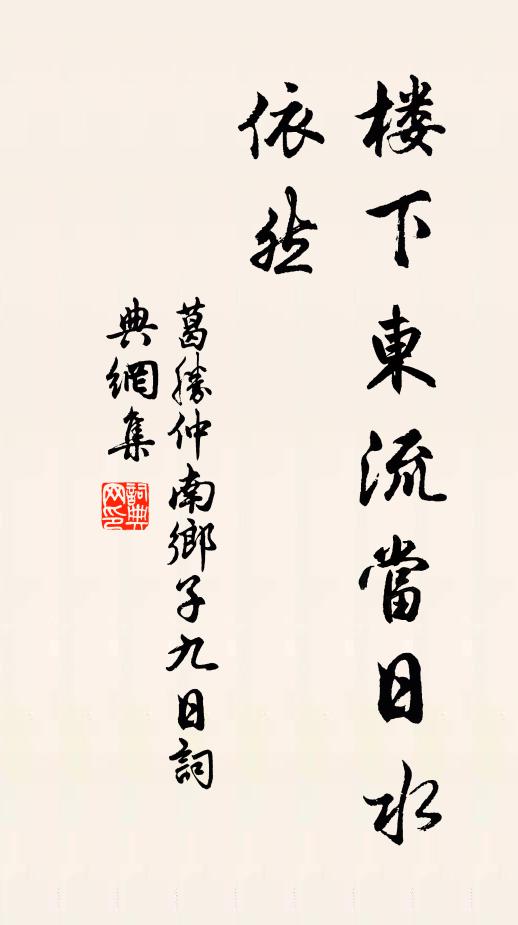 楼下東流當日水
依然
葛勝仲南鄉子九日詞
典網集
詞典
网印